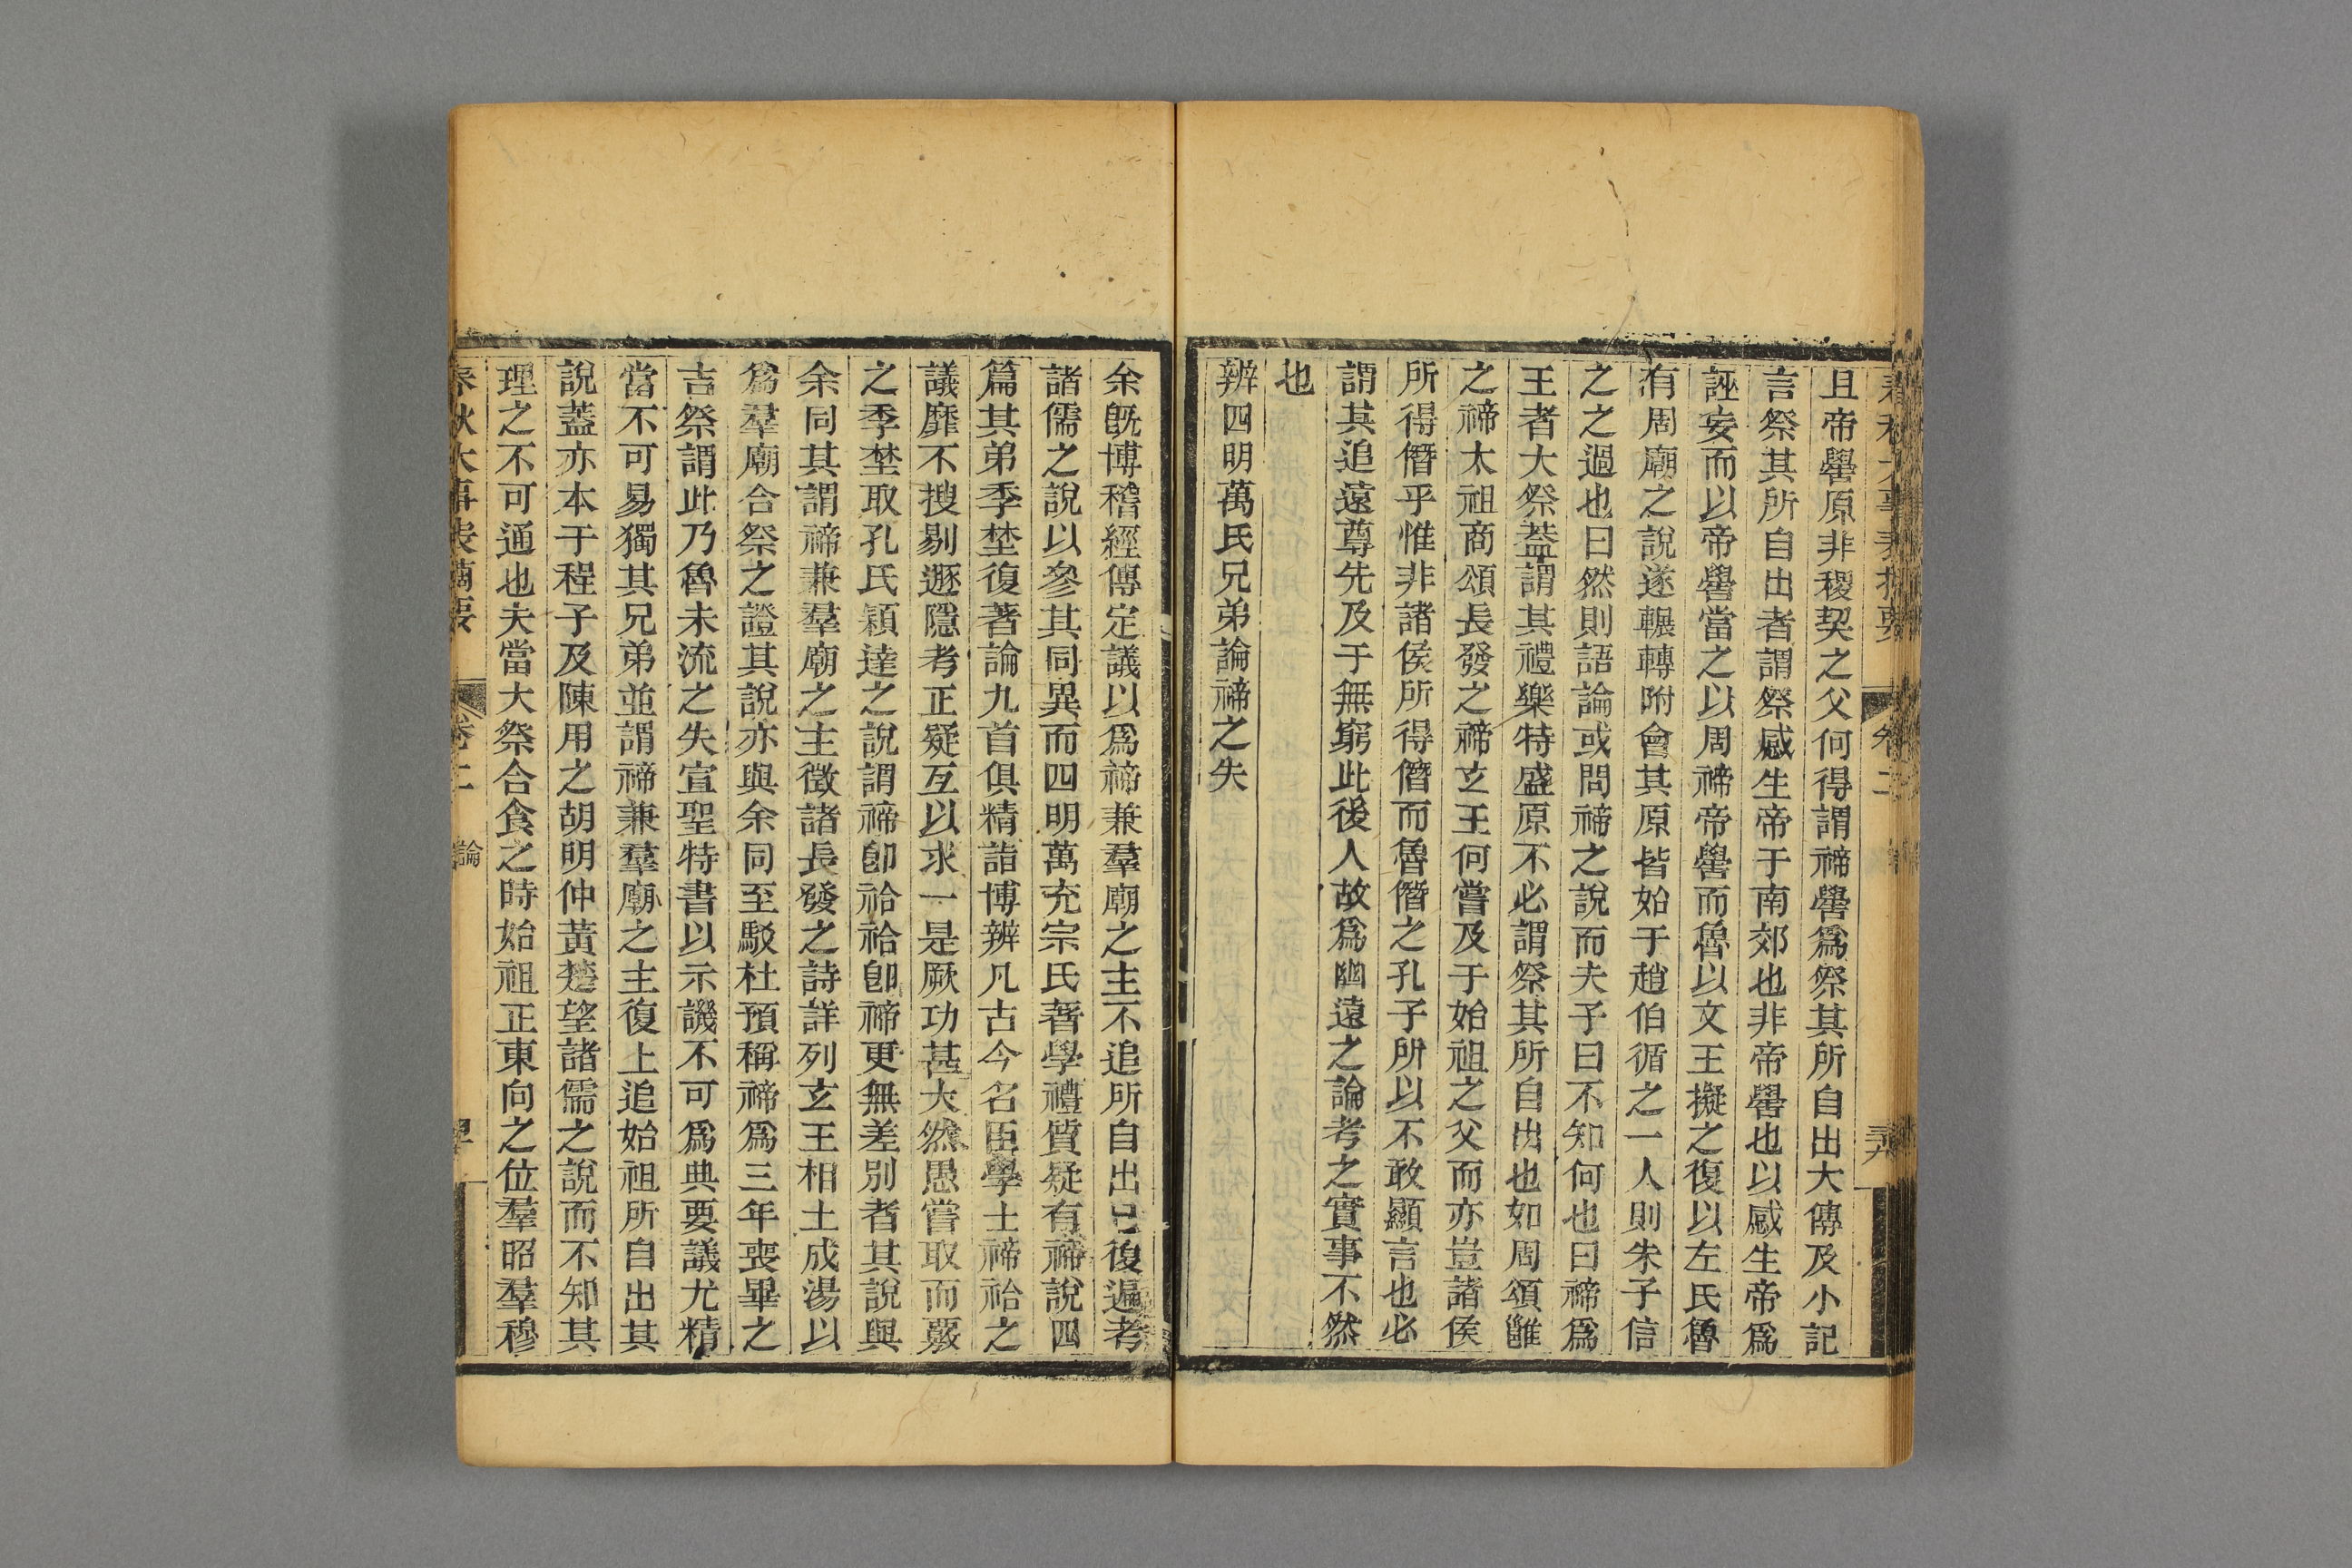 且帝嚳原非稷契之父何得謂禘嚳爲祭其所自出大傳及小記
言祭其所自出者謂祭感生帝于南郊也非帝嚳也以感生帝爲
誣妄而以帝嚳當之以周禘帝嚳而魯以文王擬之復以左氏魯
有周廟之說遂輾轉附會其原皆始于趙伯循之一人則朱子信
之之過也曰然則語論或問禘之說而夫子曰不知何也曰禘爲
王者大祭蓋謂其禮樂特盛原不必謂祭其所自出也如周頌雝
之禘太祖商頌長發之禘玄王何嘗及于始祖之父而亦豈諸侯
所得僭乎惟非諸侯所得僭而魯僭之孔子所以不敢顯言也必
謂其追遠尊先及于無窮此後人故爲幽遠之論考之實事不然
也
辨四明萬氏兄弟論禘之失
余旣博稽經傳定議以爲禘兼羣廟之主不追所自出已復遍考
諸儒之說以參其同異而四明萬充宗氏著學禮質疑有禘說四
篇其弟季埜復著論九首俱精詣博辨凡古今名臣學士禘祫之
議靡不搜剔遯隱考正疑互以求一是厥功甚大然愚嘗取而覈
之季埜取孔氏穎達之說謂禘卽祫祫卽禘更無差別者其說與
余同其謂禘兼羣廟之主徵諸長發之詩詳列玄王相土成湯以
爲羣廟合祭之證其說亦與余同至駁杜預稱禘爲三年喪畢之
吉祭謂此乃魯末流之失宣聖特書以示譏不可爲典要議尤精
當不可易獨其兄弟並謂禘兼羣廟之主復上追始祖所自出其
說蓋亦本于程子及陳用之胡明仲黃楚望諸儒之說而不知其
理之不可通也夫當大祭合食之時始祖正東向之位羣昭羣穆
春秋大事表摘要 卷二 論